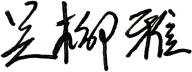 吴柳雅